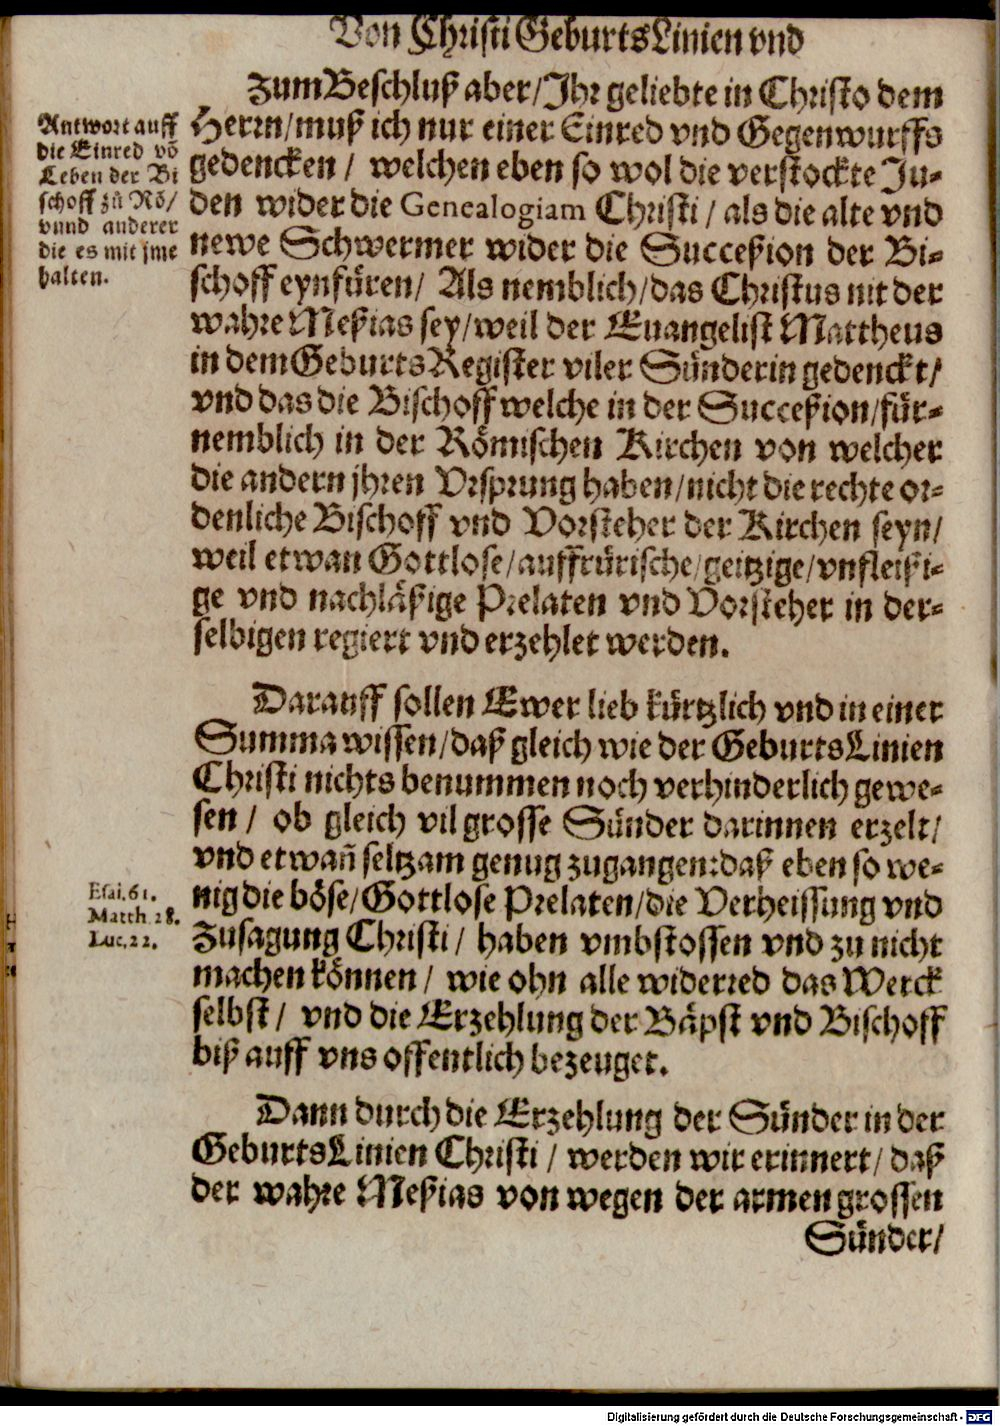 Von Christi GeburtsLinien vnd
Zum Beschluß aber/ Ihr geliebte in Christo dem
Herrn/ muß ich nur einer Einred vnd Gegenwurffs
gedencken / welchen eben so wol die verstockte Ju-
den wider die Genealogiam Christi / als die alte vnd
newe Schwermer wider die Succeßion der Bi-
schoff eynfüren/ Als nemblich/ das Christus nit der
wahre Meßias sey/ weil der Euangelist Mattheus
in dem GeburtsRegister viler Sünderin gedenckt/
vnd das die Bischoff welche in der Succeßion/ für-
nemblich in der Römischen Kirchen von welcher
die andern jhren Vrsprung haben/ nicht die rechte or-
denliche Bischoff vnd Vorsteher der Kirchen seyn/
weil etwan Gottlose/ auffrürische/ geitzige/ vnfleißi-
ge vnd nachläßige Prelaten vnd Vorsteher in der-
selbigen regiert vnd erzehlet werden.
Antwort auff
die Einred võ
Leben der Bi
schoff zů Rõ/
vnnd anderer
die es mit jme
halten.
Darauff sollen Ewer lieb kürtzlich vnd in einer
Summa wissen/ daß gleich wie der GeburtsLinien
Christi nichts benummen noch verhinderlich gewe-
sen / ob gleich vil grosse Sünder darinnen erzelt/
vnd etwañ seltzam genug zugangen: daß eben so we-
nig die böse/ Gottlose Prelaten/ die Verheissung vnd
Zusagung Christi / haben vmbstossen vnd zu nicht
machen können / wie ohn alle widerred das Werck
selbst / vnd die Erzehlung der Bäpst vnd Bischoff
biß auff vns offentlich bezeuget.
Esai. 61.
Matth. 28.
Luc. 22.
Dann durch die Erzehlung der Sünder in der
GeburtsLinien Christi / werden wir erinnert/ daß
der wahre Meßias von wegen der armen grossen
Sünder/
Digitalisierung gefördert durch die Deutsche Forschungsgemeinschaft - DFG